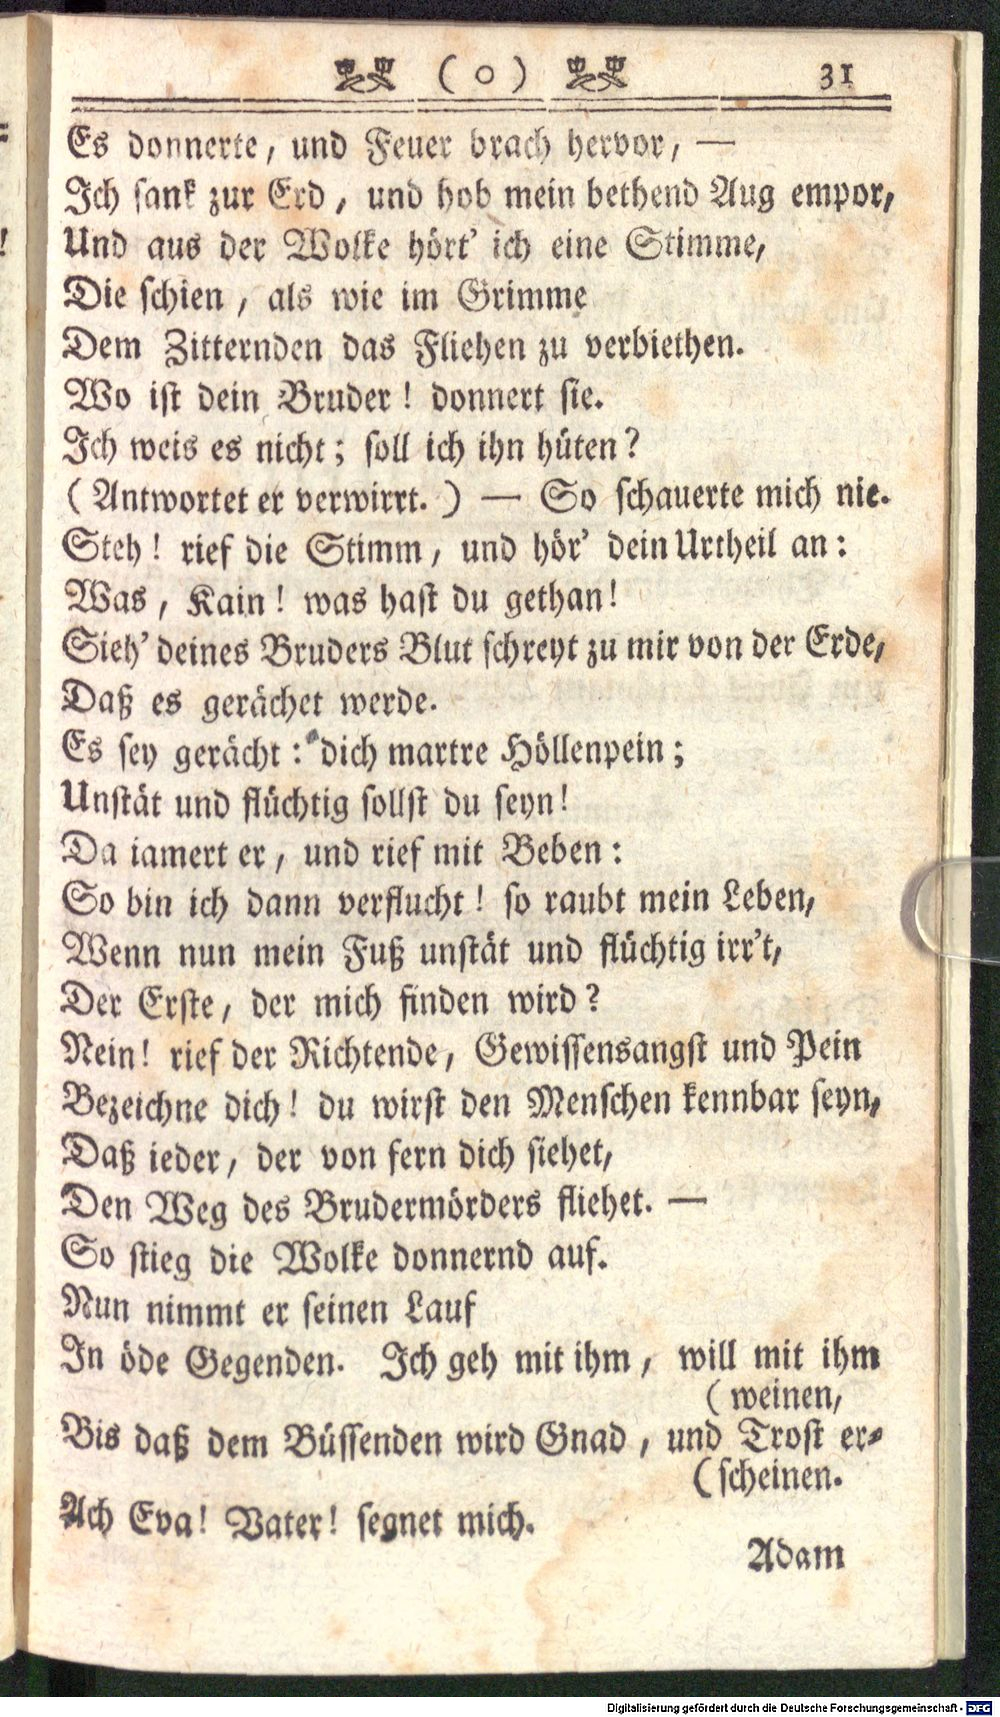 ( o ) 31
Es donnerte, und Feuer brach hervor, —
Ich sank zur Erd, und hob mein bethend Aug empor,
Und aus der Wolke hört' ich eine Stimme,
Die schien, als wie im Grimme
Dem Zitternden das Fliehen zu verbiethen.
Wo ist dein Bruder! donnert sie.
Ich weis es nicht; soll ich ihn hüten?
(Antwortet er verwirrt.) — So schauerte mich nie.
Steh! rief die Stimm, und hör' dein Urtheil an:
Was, Kain! was hast du gethan!
Sieh' deines Bruders Blut schreyt zu mir von der Erde,
Daß es gerächet werde.
Es sey gerächt: dich martre Höllenpein;
Unstät und flüchtig sollst du seyn!
Da iamert er, und rief mit Beben:
So bin ich dann verflucht! so raubt mein Leben,
Wenn nun mein Fuß unstät und flüchtig irr't,
Der Erste, der mich finden wird?
Nein! rief der Richtende, Gewissensangst und Pein
Bezeichne dich! du wirst den Menschen kennbar seyn,
Daß ieder, der von fern dich siehet,
Den Weg des Brudermörders fliehet. —
So stieg die Wolke donnernd auf.
Nun nimmt er seinen Lauf
In öde Gegenden. Ich geh mit ihm, will mit ihm
(weinen,
Bis daß dem Büssenden wird Gnad, und Trost er-
(scheinen.
Ach Eva! Vater! segnet mich.
Adam
Digitalisierung gefördert durch die Deutsche Forschungsgemeinschaft - DFG